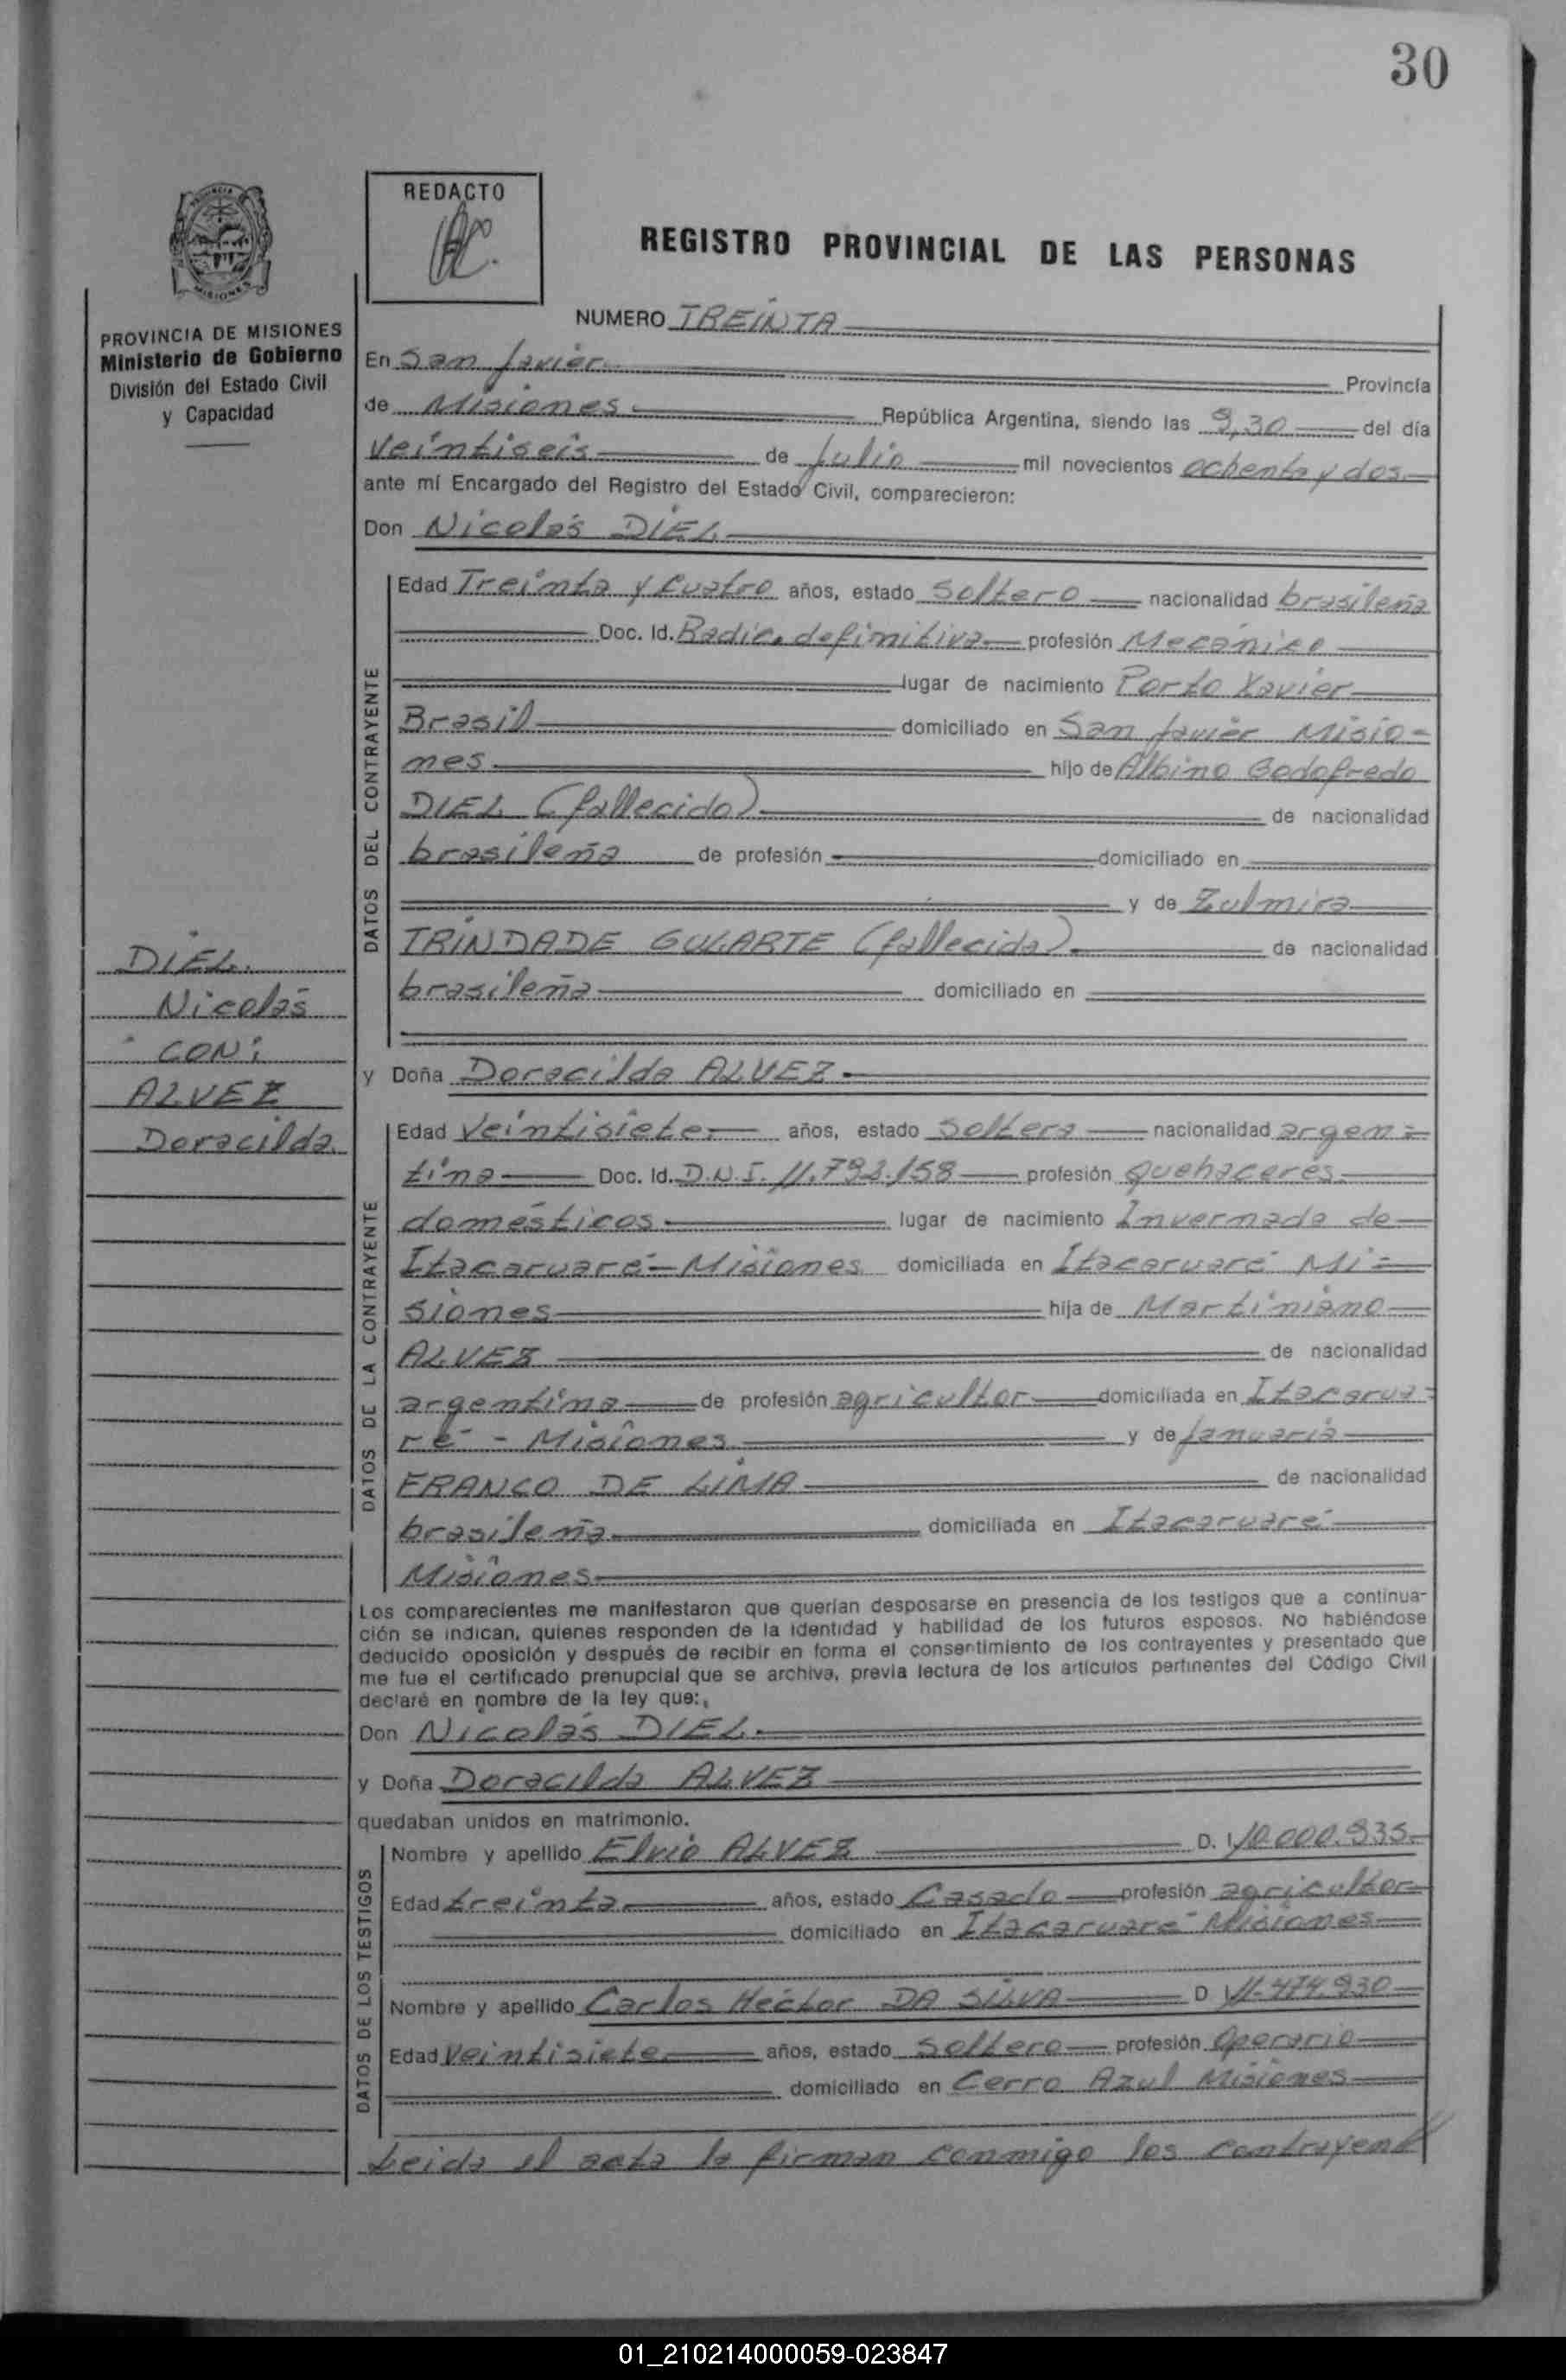 30
REDACTO
REGISTRO PROVINCIAL DE LAS PERSONAS
PROVINCIA DE MISIONES
Ministerio de Gobierno
División del Estado Civil
y Capacidad
NUMERO TREINTA
En San Javier Provincia
de Misiones República Argentina, siendo las 9,30 del día
veintiseis de Julio mil novecientos ochenta y dos
ante mí Encargado del Registro del Estado Civil, comparecieron:
Don Nicolás DIEL
DATOS DEL CONTRAYENTE
Edad Treinta y cuatro años, estado soltero nacionalidad brasileña
Doc. Id. Radic. definitiva profesión Mecánico
lugar de nacimiento Porto Xavier
Brasil domiciliado en San Javier Misio=
nes hijo de Albino Godofredo
DIEL (fallecido) de nacionalidad
brasileña de profesión domiciliado en
y de Zulmira
TRINDADE GULARTE (fallecida) de nacionalidad
brasileña domiciliado en
DIEL
Nicolás
CON:
ALVEZ
Doracilda
y Doña Doracilda ALVEZ
DATOS DE LA CONTRAYENTE
Edad veintisiete años, estado soltera nacionalidad argen=
tina Doc. Id. D.N.I. 11.793.158 profesión quehaceres
domésticos lugar de nacimiento Invernada de
Itacaruaré-Misiones domiciliada en Itacaruaré Mi=
siones hija de Martiniano
ALVEZ de nacionalidad
argentina de profesión agricultor domiciliada en Itacarua=
ré - Misiones y de Januaria
FRANCO DE LIMA de nacionalidad
brasileña domiciliada en Itacaruaré
Misiones
Los comparecientes me manifestaron que querían desposarse en presencia de los testigos que a continua-
ción se indican, quienes responden de la identidad y habilidad de los futuros esposos. No habiéndose
deducido oposición y después de recibir en forma el consentimiento de los contrayentes y presentado que
me fue el certificado prenupcial que se archiva, previa lectura de los artículos pertinentes del Código Civil
declaré en nombre de la ley que:
Don Nicolás DIEL
y Doña Doracilda ALVEZ
quedaban unidos en matrimonio.
DATOS DE LOS TESTIGOS
Nombre y apellido Elvio ALVEZ D. I. 10.000.935
Edad treinta años, estado Casado profesión agricultor
domiciliado en Itacaruaré Misiones
Nombre y apellido Carlos Héctor DA SILVA D I 11.474.930
Edad veintisiete años, estado soltero profesión Operario
domiciliado en Cerro Azul Misiones
Leida el acta la firman conmigo los contrayent
01_210214000059-023847